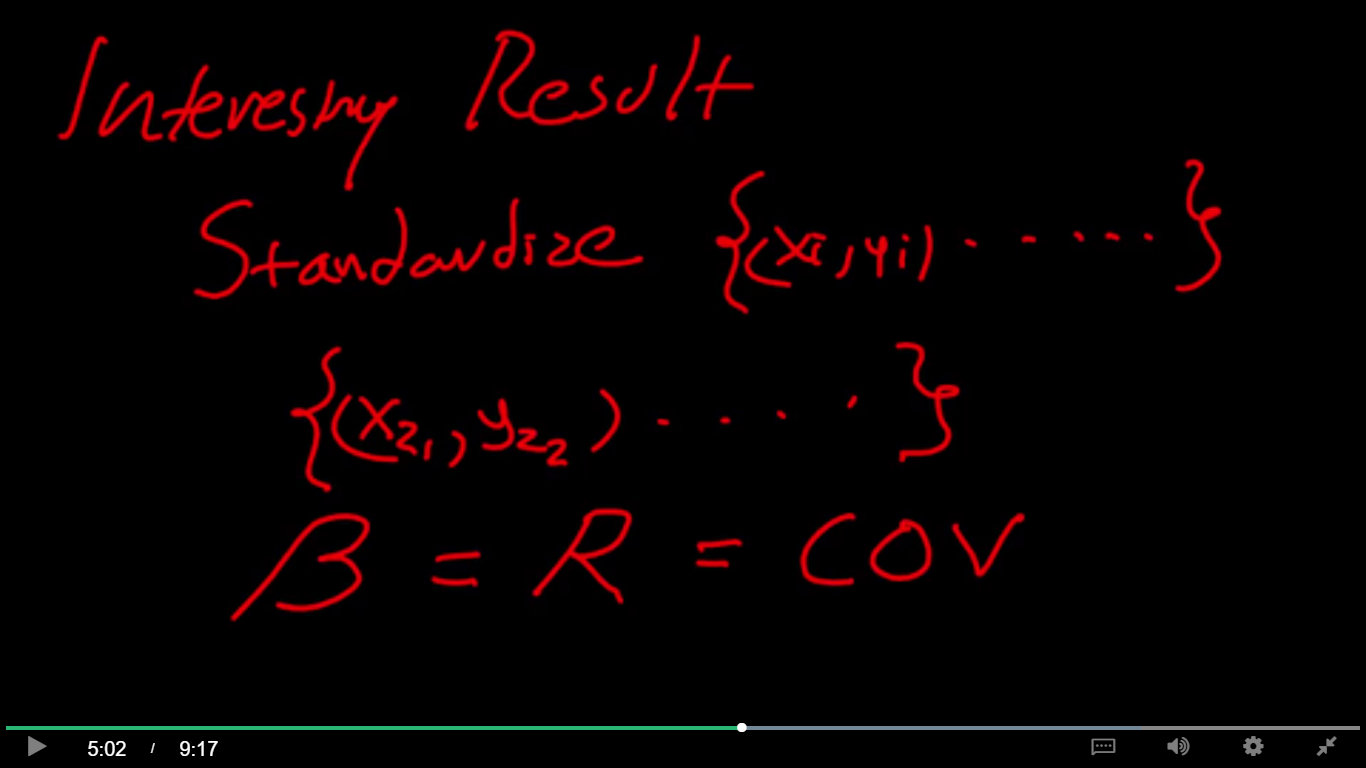 Interesting Result
Standardize {(xi, yi) . . . . . }
{(xz1, yz2) . . . . }
β = R = COV
5:02 / 9:17